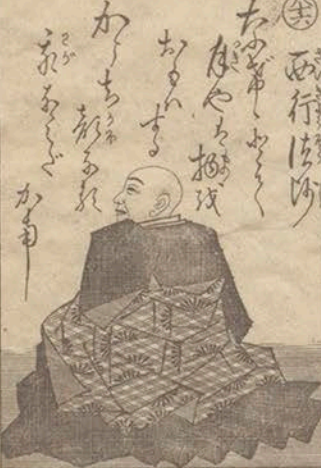 八十六
西行法師
なげけとて
月やは物を
おもはする
かこち顔なる
我なみだ
かな